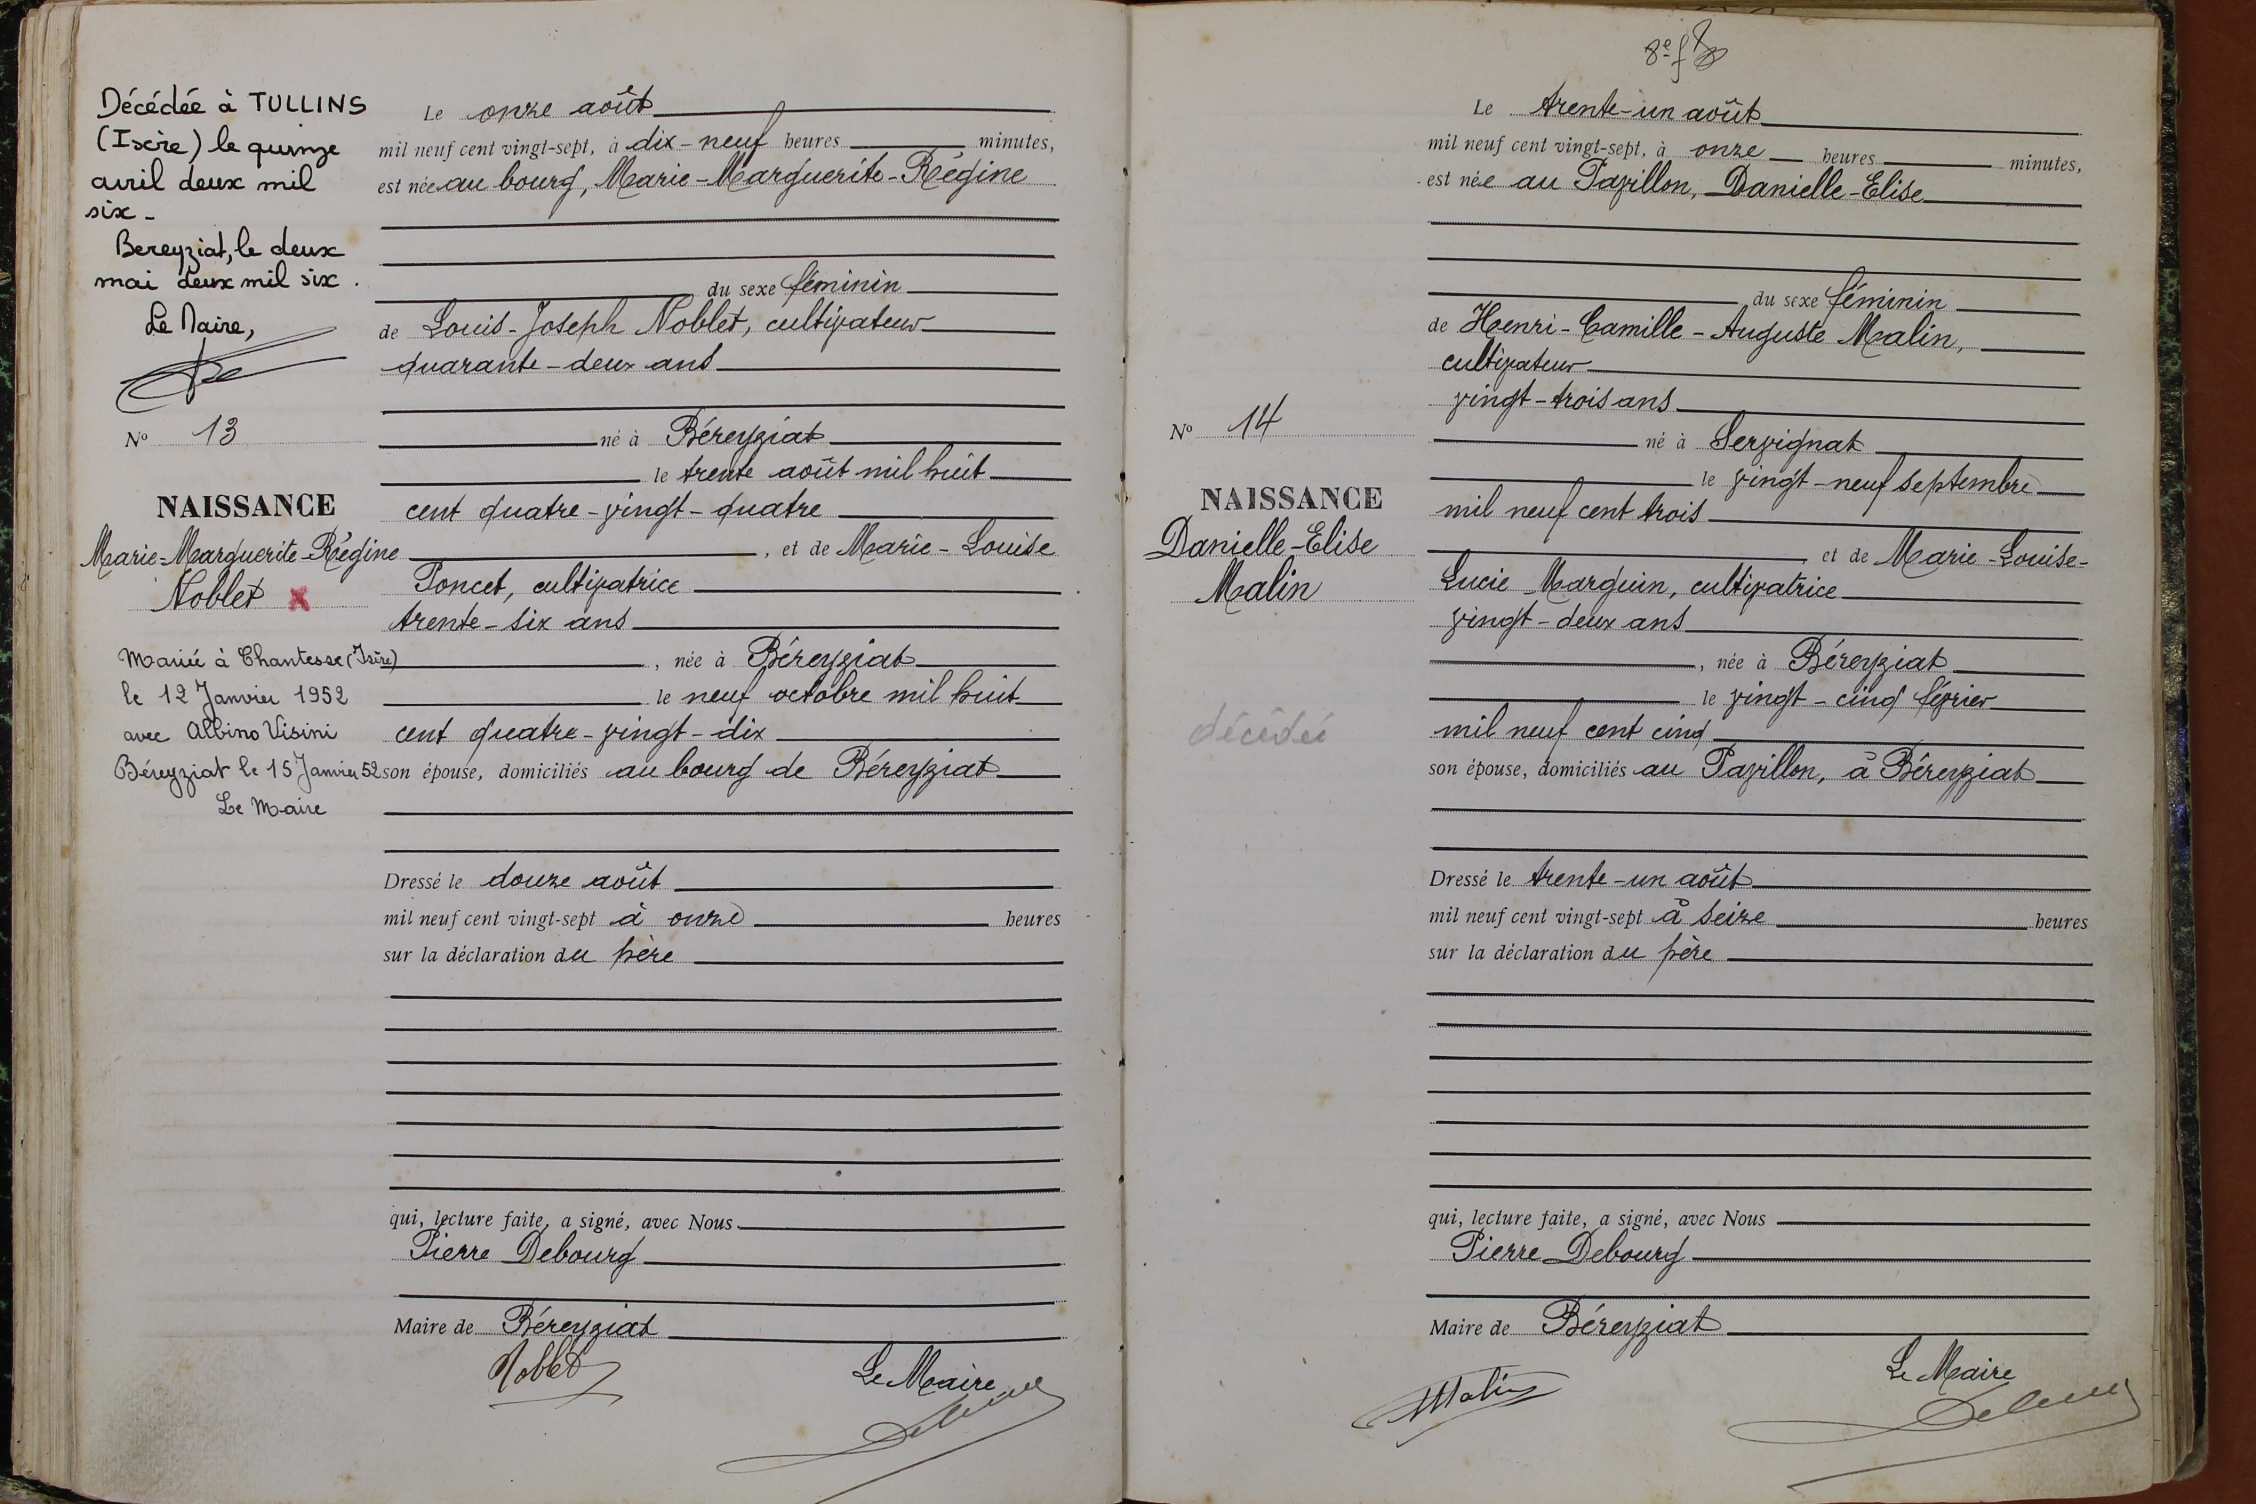 Décédée à TULLINS
(Isère) le quinze
avril deux mil
six -
Bereyziat, le deux
mai deux mil six.
Le Maire,
N° 13
NAISSANCE
Marie-Marguerite-Régine
Noblet x
Mariée à Chantesse (Isère)
le 12 Janvier 1952
avec Albino Visini
Béreyziat le 15 Janvier 52
Le Maire
Le onze août
mil neuf cent vingt-sept, à dix-neuf heures minutes,
est née au bourg, Marie-Marguerite-Régine
du sexe féminin
de Louis-Joseph Noblet, cultivateur
quarante-deux ans
né à Béreyziat
le trente août mil huit
cent quatre-vingt-quatre
, et de Marie-Louise
Poncet, cultivatrice
trente-six ans
, née à Béreyziat
le neuf octobre mil huit
cent quatre-vingt-dix
son épouse, domiciliés au bourg de Béreyziat
Dressé le douze août
mil neuf cent vingt-sept à onze heures
sur la déclaration du père
qui, lecture faite, a signé, avec Nous
Pierre Debourg
Maire de Béreyziat
Noblet
Le Maire
8e f
N° 14
NAISSANCE
Danielle-Elise
Malin
décédée
Le trente-un août
mil neuf cent vingt-sept, à onze heures minutes,
est née au Pavillon, Danielle-Elise
du sexe féminin
de Henri-Camille-Auguste Malin,
cultivateur
vingt-trois ans
né à Servignat
le vingt-neuf septembre
mil neuf cent trois
et de Marie-Louise-
Lucie Marguin, cultivatrice
vingt-deux ans
, née à Béreyziat
le vingt-cinq février
mil neuf cent cinq
son épouse, domiciliés au Pavillon, à Béreyziat
Dressé le trente-un août
mil neuf cent vingt-sept à seize heures
sur la déclaration du père
qui, lecture faite, a signé, avec Nous
Pierre Debourg
Maire de Béreyziat
Malin
Le Maire